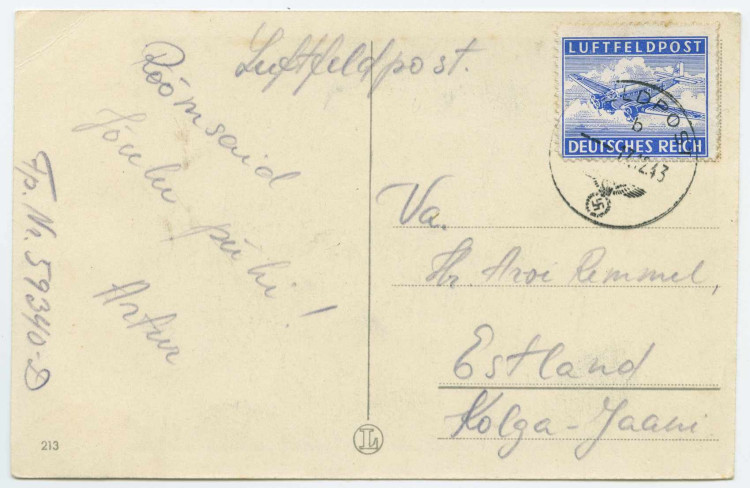 Luftfeldpost.
Rõõmsaid
Jõulu pühi!
Artur
Fp. Nr. 59340-D
213
L
LUFTFELDPOST
DEUTSCHES REICH
LDPOST
b
12.43
Va.
Hr. Arvi Remmel,
Estland
Kolga-Jaani